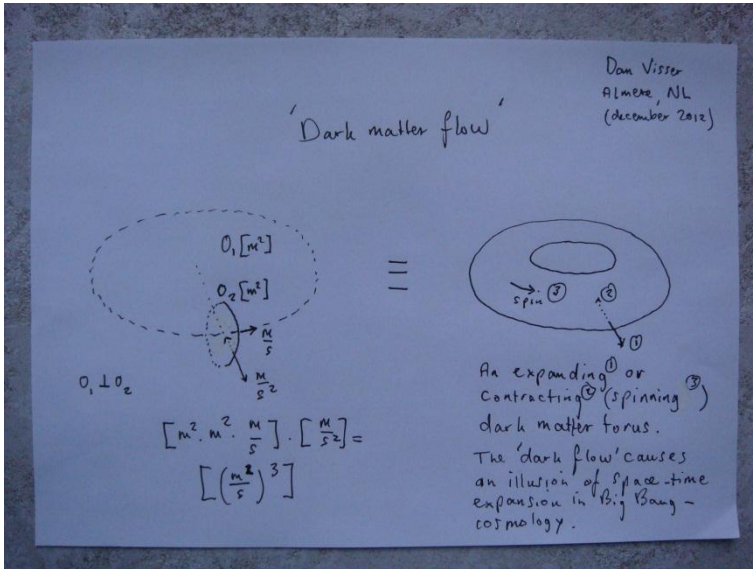 Dan Visser
Almere, NL
(december 2012)
'Dark matter flow'
O₁[m²]
O₂[m²]
m/s
m/s²
O₁ ⊥ O₂
[m² . m² . m/s] . [m/s²] =
[(m²/s)³]
≡
spin ③
②
①
An expanding① or
contracting② (spinning③)
dark matter torus.
The 'dark flow' causes
an illusion of space-time
expansion in Big Bang-
cosmology.